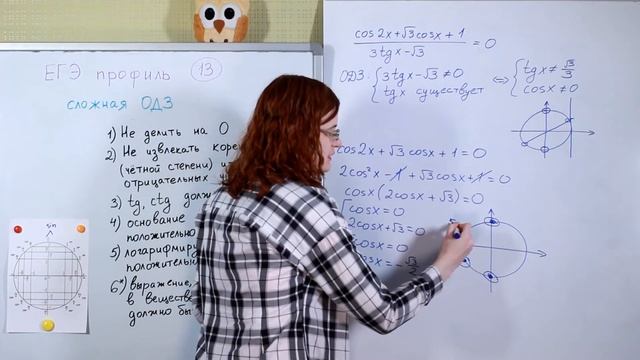 ЕГЭ профиль 13
сложная ОДЗ
1) Не делить на 0
2) Не извлекать
(чётной степени)
отрицательных
3) tg, ctg
4) основание
положительно
5)
6*) выражение,
в
должно
sin
cos2x+√3cosx+1
/ 3tgx-√3 = 0
ОДЗ: { 3tgx-√3 ≠ 0 ⇔ { tgx ≠ √3/3
tgx существует cosx ≠ 0
cos2x+√3cosx+1=0
2cos²x-1+√3cosx+1=0
cosx(2cosx+√3)=0
[ cosx=0
2cosx+√3=0
cosx=0
cosx=-√3/2